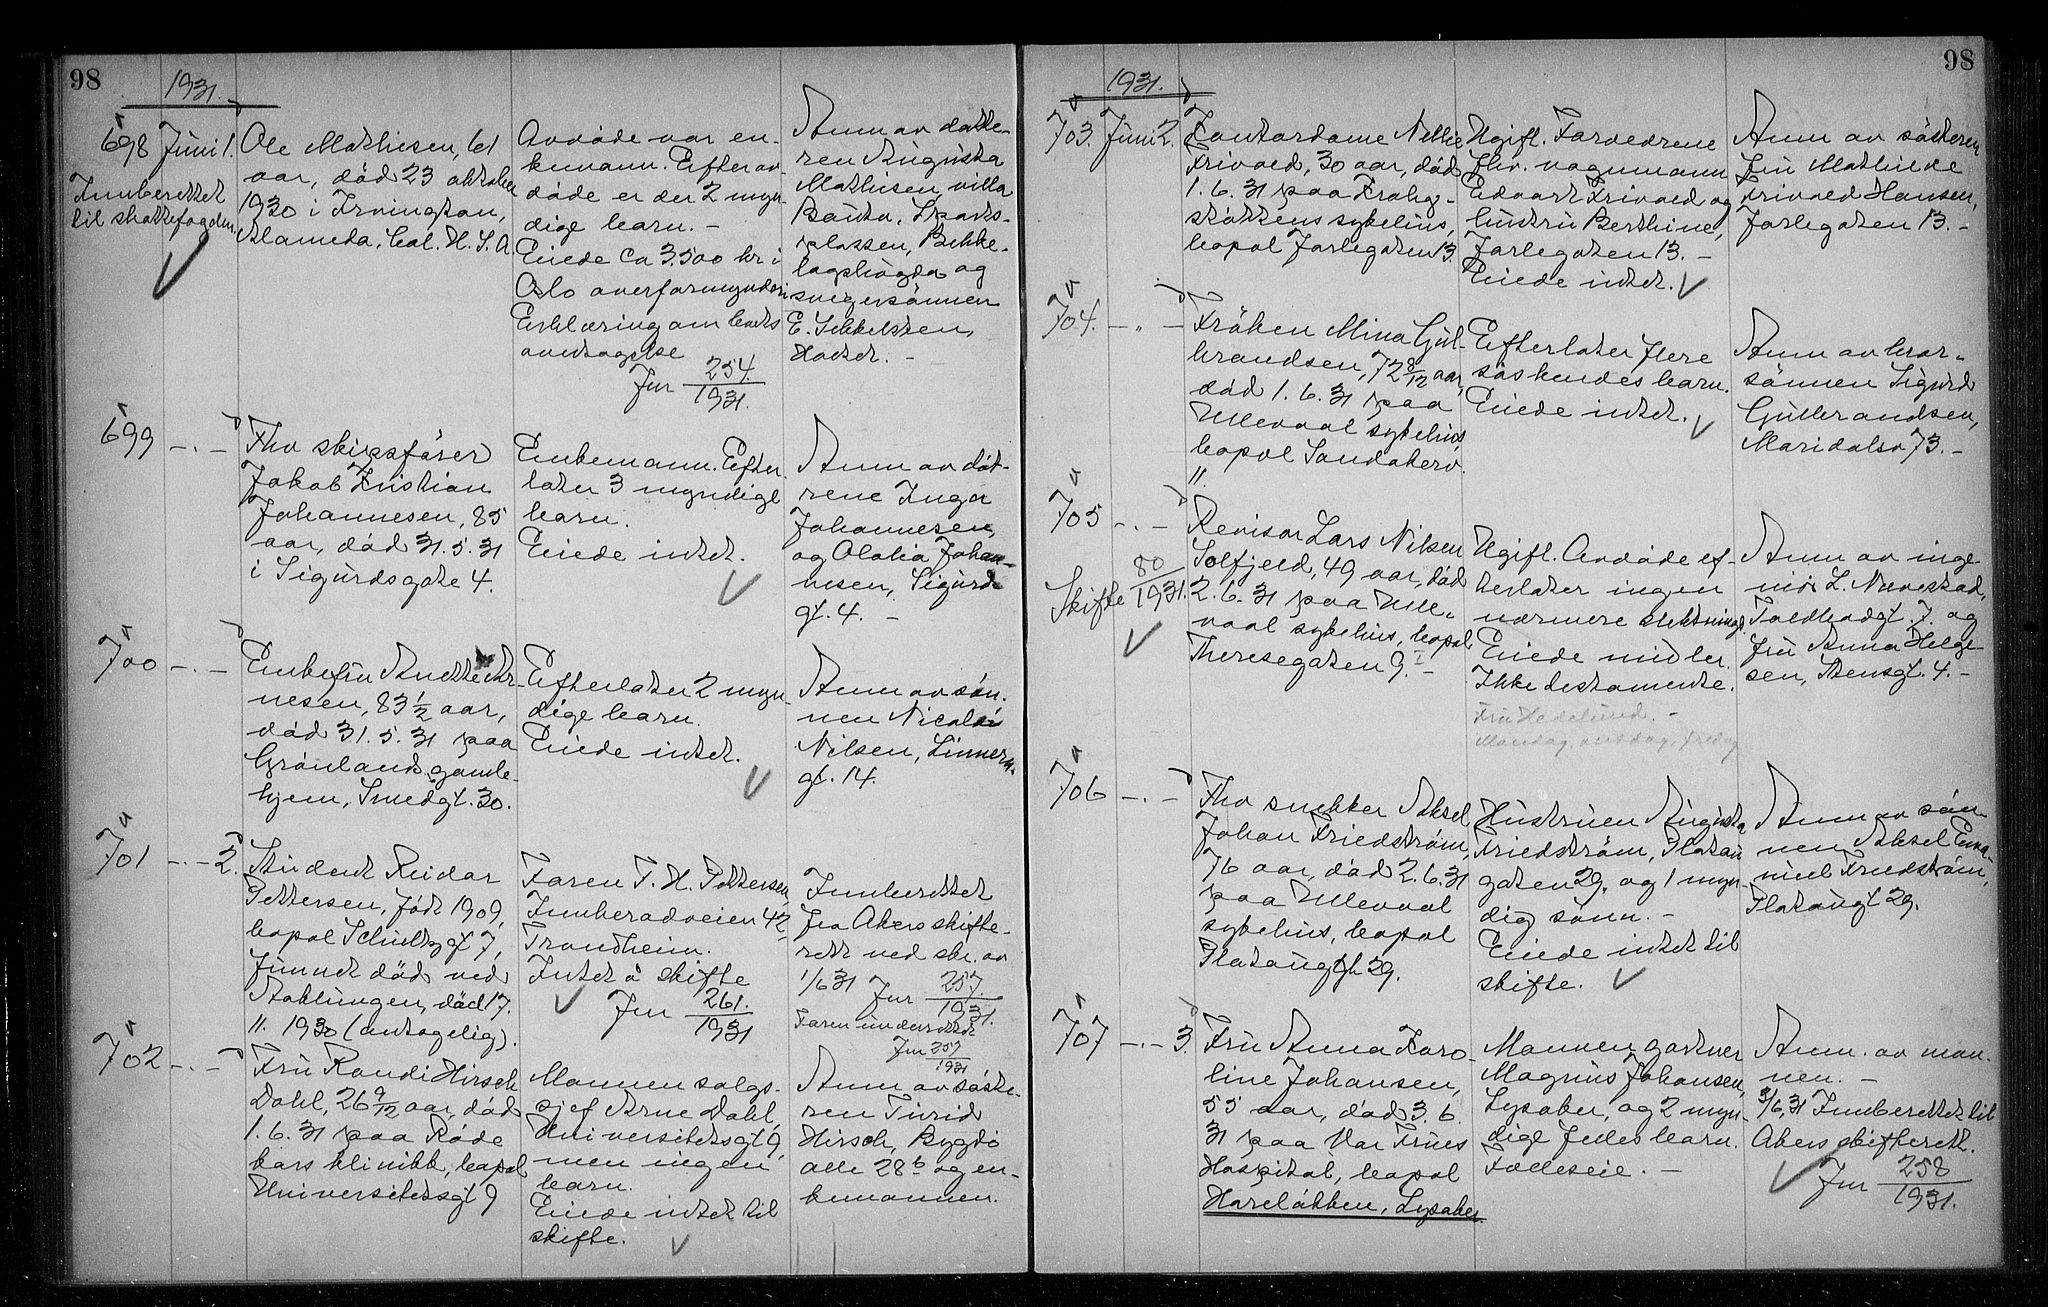 98
1931.
698 Juni 1.
Innberettet
til skattefogden.
Ole Mathisen, 61
aar, död 23 oktober
1930 i Irvington,
Alameda, Cal. U. S. A.
Avdöde var en-
kemann. Efter av-
döde er der 2 myn-
dige barn. -
Eiede ca 3.500 kr i
Oslo overformynderi
Erklæring om bouts
overtagelse
Jnr 254./1931.
Anm av datte-
ren Augusta
Mathisen, villa
Bauta, Sports-
plassen, Bekke-
lagshögda og
svigersönnen
E. Sikkelsen,
Hotet. -
699 -.-
Fhv skipsförer
Jakob Kristian
Johannesen, 85
aar, död 31.5.31
i Sigurdsgate 4.
Enkemann. Efter-
later 3 myndige
barn.
Eiede intet.
Anm av döt-
rene Inga
Johannesen,
og Olalia Johan-
nesen, Sigurds
gt. 4. -
700 -.-
Enkefru Anette Ar-
nesen, 83 1/2 aar,
död 31.5.31 paa
Grönlands gamle-
hjem, Smedgt. 30.
Efterlater 2 myn-
dige barn.
Eiede intet.
Anm av sön-
nen Nicolai
Nilsen, Linnerm.
gt. 14.
701 -.- 2.
Student Reidar
Pettersen, födt 1909,
bopel Schultzgt 7,
funnet död ved
Stoklungen, död 17.
11. 1930 (antagelig).
Faren T. H. Pettersen,
Innherredveien 42
Trondheim.
Intet å skifte
Jnr 261./1931
Innberettet
fra Akers skifte-
rett ved skr. av
1/6 31 Jnr 257./1931.
Faren underrettet
Jnr 257/1931
702 -.-
Fru Randi Hirsch
Dahl, 26 9/12 aar, död
1.6.31 paa Röde
kors klinikk, bopel
Universitetsgt 9
Mannen salgs-
sjef Arne Dahl,
Universitetsgt 9,
men ingen
barn.
Eiede intet til
skifte.
Anm av söste-
ren Turid
Hirsch, Bygdö
alle 28 b og en-
kemannen.
98
1931.
703. Juni 2.
Kontordame Nellie
Trivold, 30 aar, död
1.6.31 paa Krohg-
stöttens sykehus,
bopel Jarlegaten 13.
Ugift. Forældrene
fhv. vognmann
Edvart Trivold og
hustru Berthine,
Jarlegaten 13. -
Eiede intet.
Anm av sösteren
fru Mathilde
Trivold Hansen,
Jarlegaten 13. -
704. - " -
Fröken Mina Gul-
brandsen, 72 8/12 aar,
död 1.6.31 paa
Ullevaal sykehus,
bopel Sandakerv.
11.
Efterlater flere
söskendes barn.
Eiede intet.
Anm av bror-
sönnen Sigurd
Gulbrandsen,
Maridalsv 73. -
705 -.-
Skifte 80/1931.
Revisor Lars Nilsen
Solfjeld, 49 aar, död
2.6.31 paa Ulle-
vaal sykehus, bopel
Theresegaten 9. I -
Ugift. Avdöde ef-
terlater ingen
nærmere slektninge.
Eiede midler.
Ikke testamente.
Fru Hedelund. -
Mandag, onsdag, fredag
Anm av inge-
niör L. Nuvestad,
Toldbodgt. 7. og
fru Anna Helge-
sen, Stensgt. 4. -
706 -.-
Fhv snekker Aksel
Johan Friedström,
76 aar, död 2.6.31
paa Ullevaal
sykehus, bopel
Platougt 29.
Hustruen Augusta
Friedström, Platou
gaten 29. og 1 myn-
dig sönn. -
Eiede intet til
skifte.
Anm av sön-
nen Aksel Ema-
nuel Friedström,
Platougt 29.
707 -.- 3.
Fru Anna Karo-
line Johansen,
55 aar, död 3.6.
31 paa Vor Frues
Hospital, bopel
Hareløkken, Lysaker
Mannen gartner
Magnus Johansen,
Lysaker, og 2 myn-
dige felles barn.
Felleseie. -
Anm. av man-
nen. -
3/6.31 Innberettet til
Akers skifterett.
Jnr 258/1931.